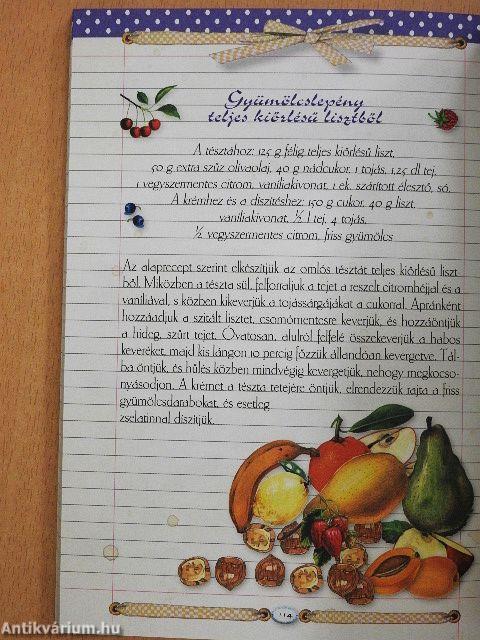 Gyümölcslepény
teljes kiőrlésű lisztből
A tésztához: 125 g félig teljes kiőrlésű liszt,
50 g extra szűz olívaolaj, 40 g nádcukor, 1 tojás, 1,25 dl tej,
1 vegyszermentes citrom, vaníliakivonat, 1 ek. szárított élesztő, só.
A krémhez és a díszítéshez: 150 g cukor, 40 g liszt,
vaníliakivonat, ½ l tej, 4 tojás,
½ vegyszermentes citrom, friss gyümölcs
Az alaprecept szerint elkészítjük az omlós tésztát teljes kiőrlésű liszt-
ből. Miközben a tészta sül, felforraljuk a tejet a reszelt citromhéjjal és a
vaníliával, s közben kikeverjük a tojássárgájákat a cukorral. Apránként
hozzáadjuk a szitált lisztet, csomómentesre keverjük, és hozzáöntjük
a hideg, szűrt tejet. Óvatosan, alulról felfelé összekeverjük a habos
keveréket, majd kis lángon 10 percig főzzük állandóan kevergetve. Tál-
ba öntjük, és hűlés közben mindvégig kevergetjük, nehogy megkocso-
nyásodjon. A krémet a tészta tetejére öntjük, elrendezzük rajta a friss
gyümölcsdarabokat, és esetleg
zselatinnal díszítjük.
114
Antikvárium.hu